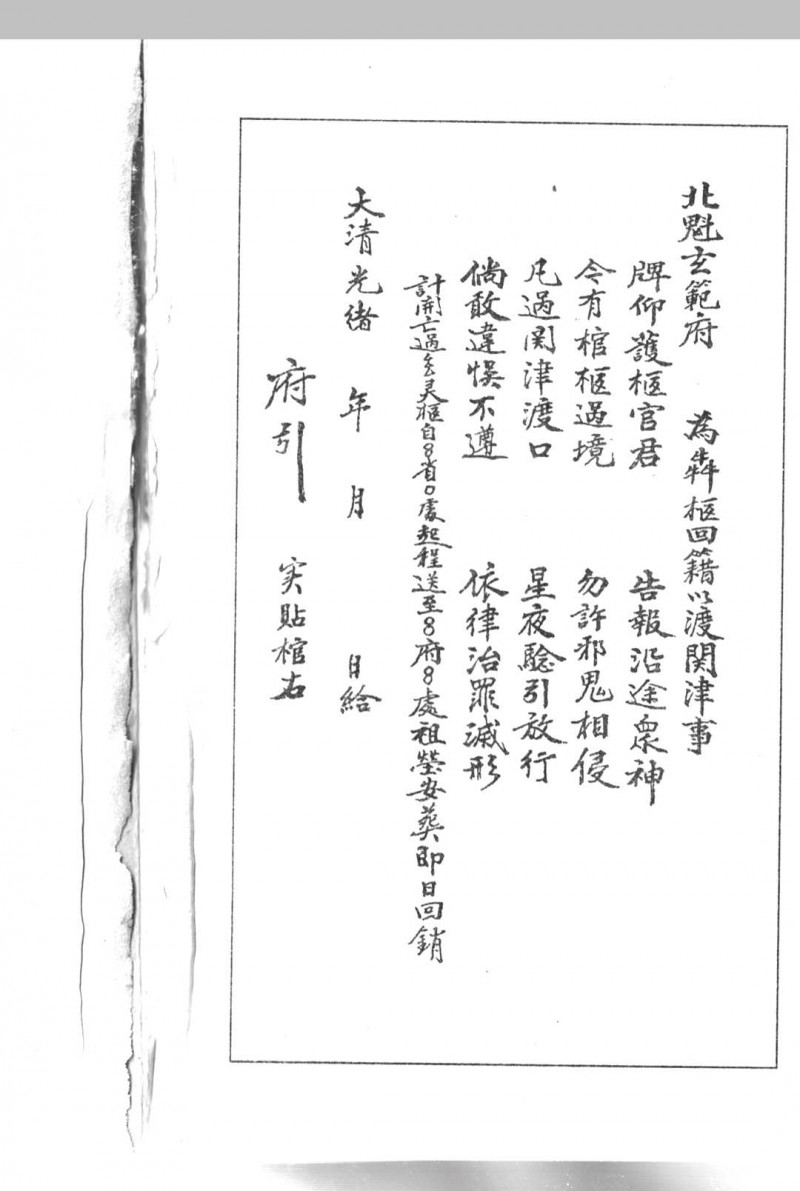 北魁玄範府 為犇柩回籍以渡関津事
牌仰護柩官君 告報沿途眾神
令有棺柩過境 勿許邪鬼相侵
凡過関津渡口 星夜驗引放行
倘敢違悞不遵 依律治罪滅形
計開亡過 灵柩自8省0處起程送至8府8處祖塋安葬即日回銷
大清光緒 年 月 日給
府引 实貼棺右